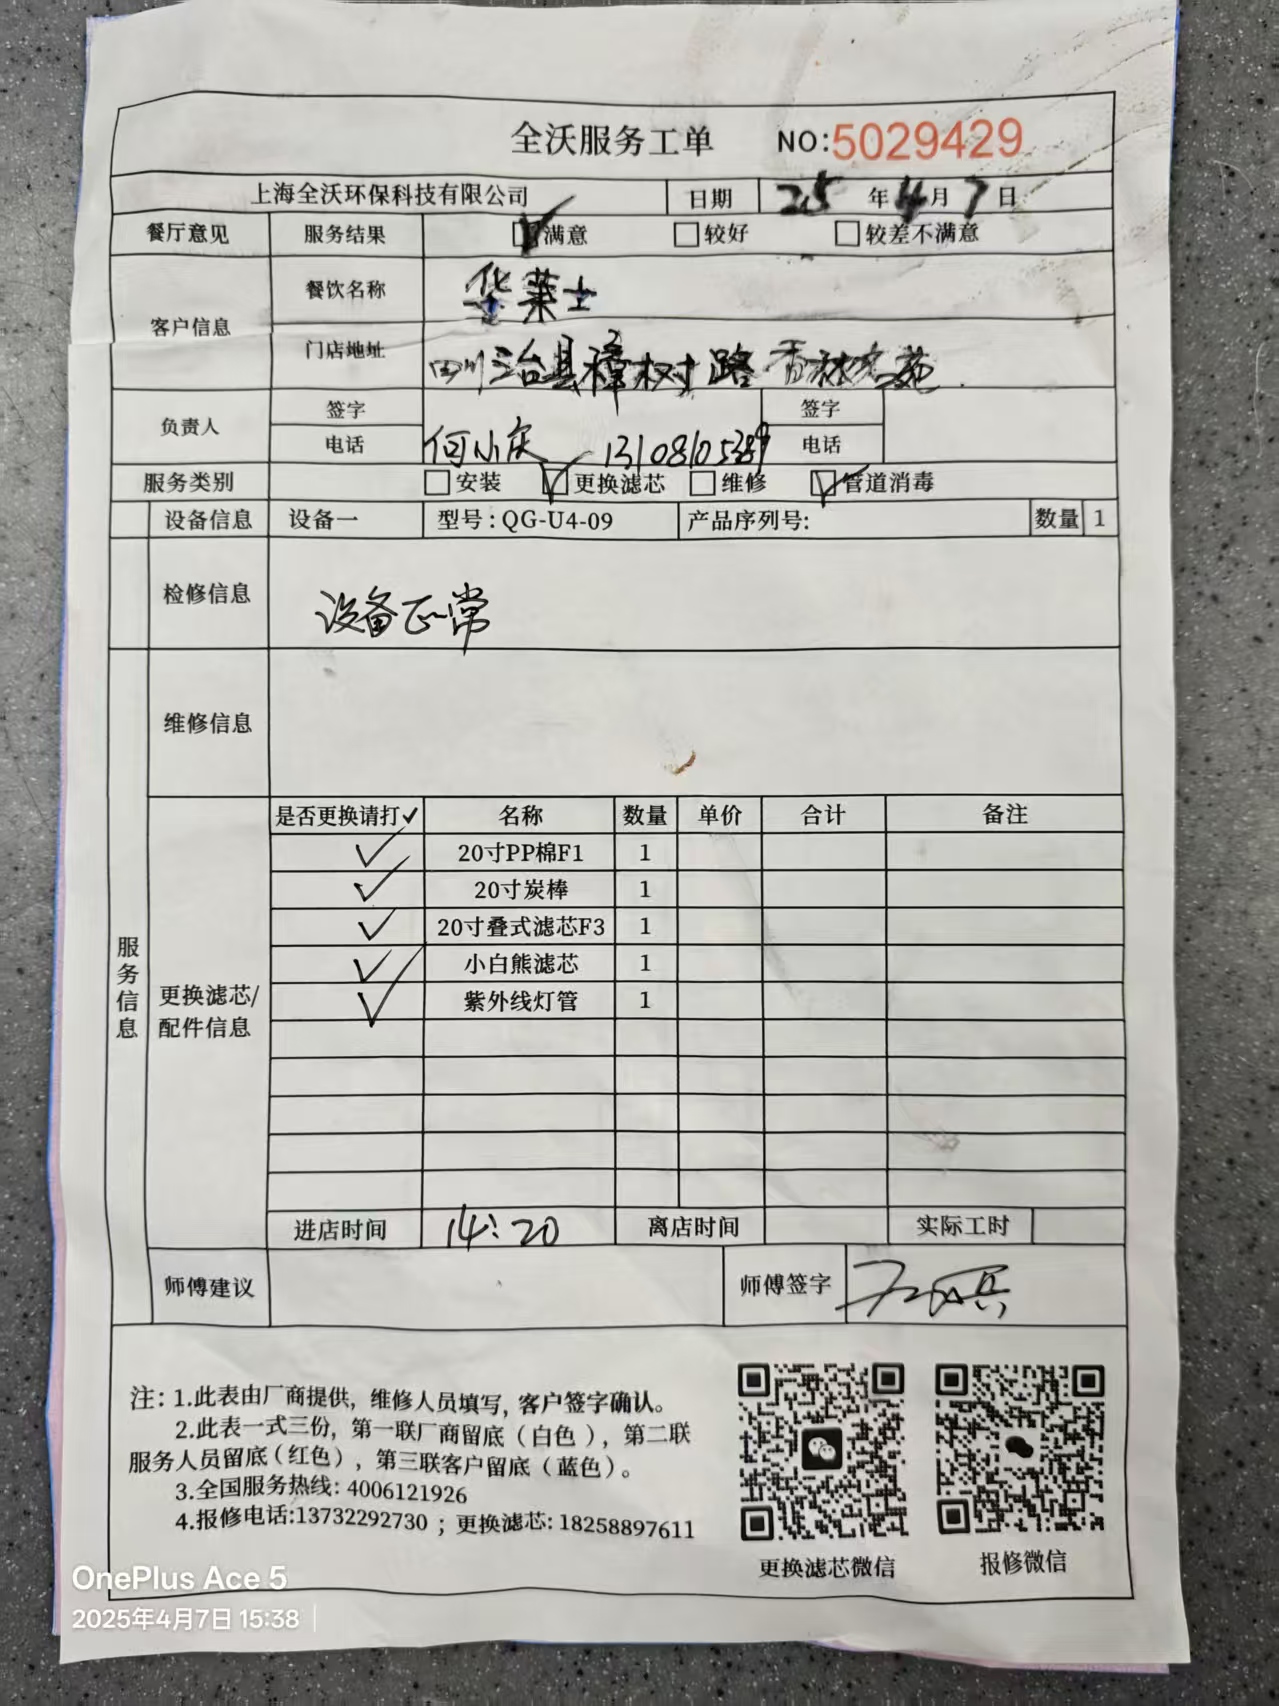 全沃服务工单 NO:5029429
上海全沃环保科技有限公司 日期 25年4月7日
餐厅意见 服务结果 满意 较好 较差不满意
客户信息 餐饮名称 华莱士
门店地址 四川三台县樟树路香林
负责人 签字 签字
电话 何小庆 13108105389 电话
服务类别 安装 更换滤芯 维修 管道消毒
设备信息 设备一 型号:QG-U4-09 产品序列号: 数量 1
检修信息 设备正常
维修信息
服务信息
更换滤芯/
配件信息
是否更换请打✓ 名称 数量 单价 合计 备注
✓ 20寸PP棉F1 1
✓ 20寸炭棒 1
✓ 20寸叠式滤芯F3 1
✓ 小白熊滤芯 1
✓ 紫外线灯管 1
进店时间 14:20 离店时间 实际工时
师傅建议 师傅签字
注:1.此表由厂商提供,维修人员填写,客户签字确认。
2.此表一式三份,第一联厂商留底(白色),第二联
服务人员留底(红色),第三联客户留底(蓝色)。
3.全国服务热线:4006121926
4.报修电话:13732292730;更换滤芯:18258897611
更换滤芯微信 报修微信
OnePlus Ace 5
2025年4月7日 15:38